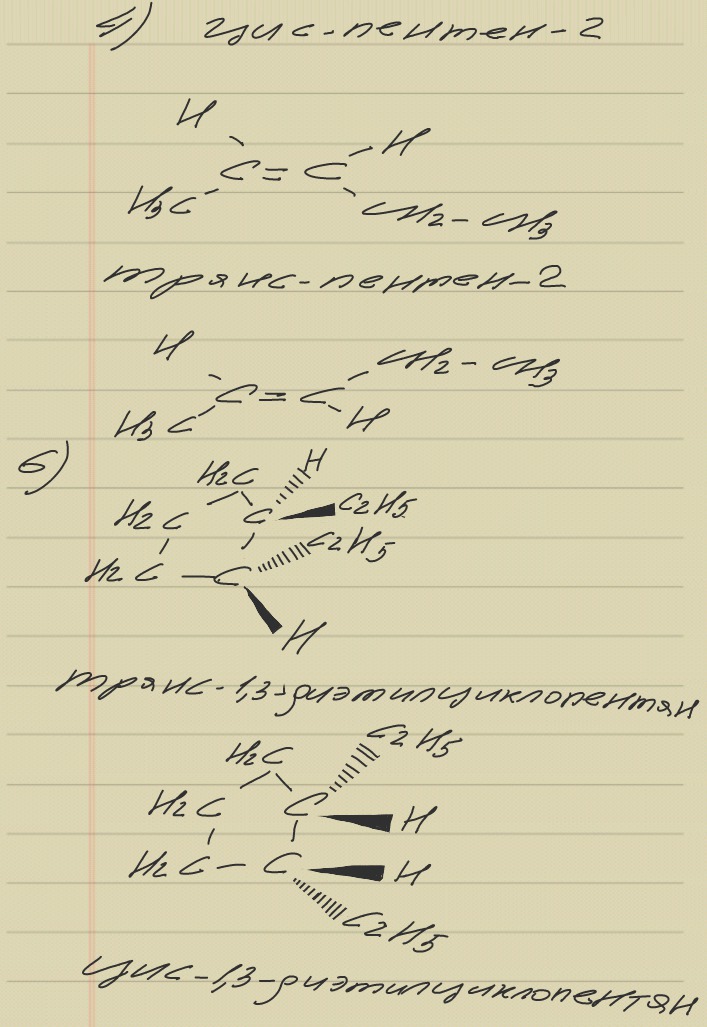 4) цис-пентен-2
H
H
C = C
H3C
CH2 - CH3
транс-пентен-2
H
CH2 - CH3
C = C
H3C
H
б)
H2C
H
H2C
C
C2H5
C2H5
H2C - C
H
транс-1,3-диэтилциклопентан
H2C
C2H5
H2C
C
H
H2C - C
H
C2H5
цис-1,3-диэтилциклопентан